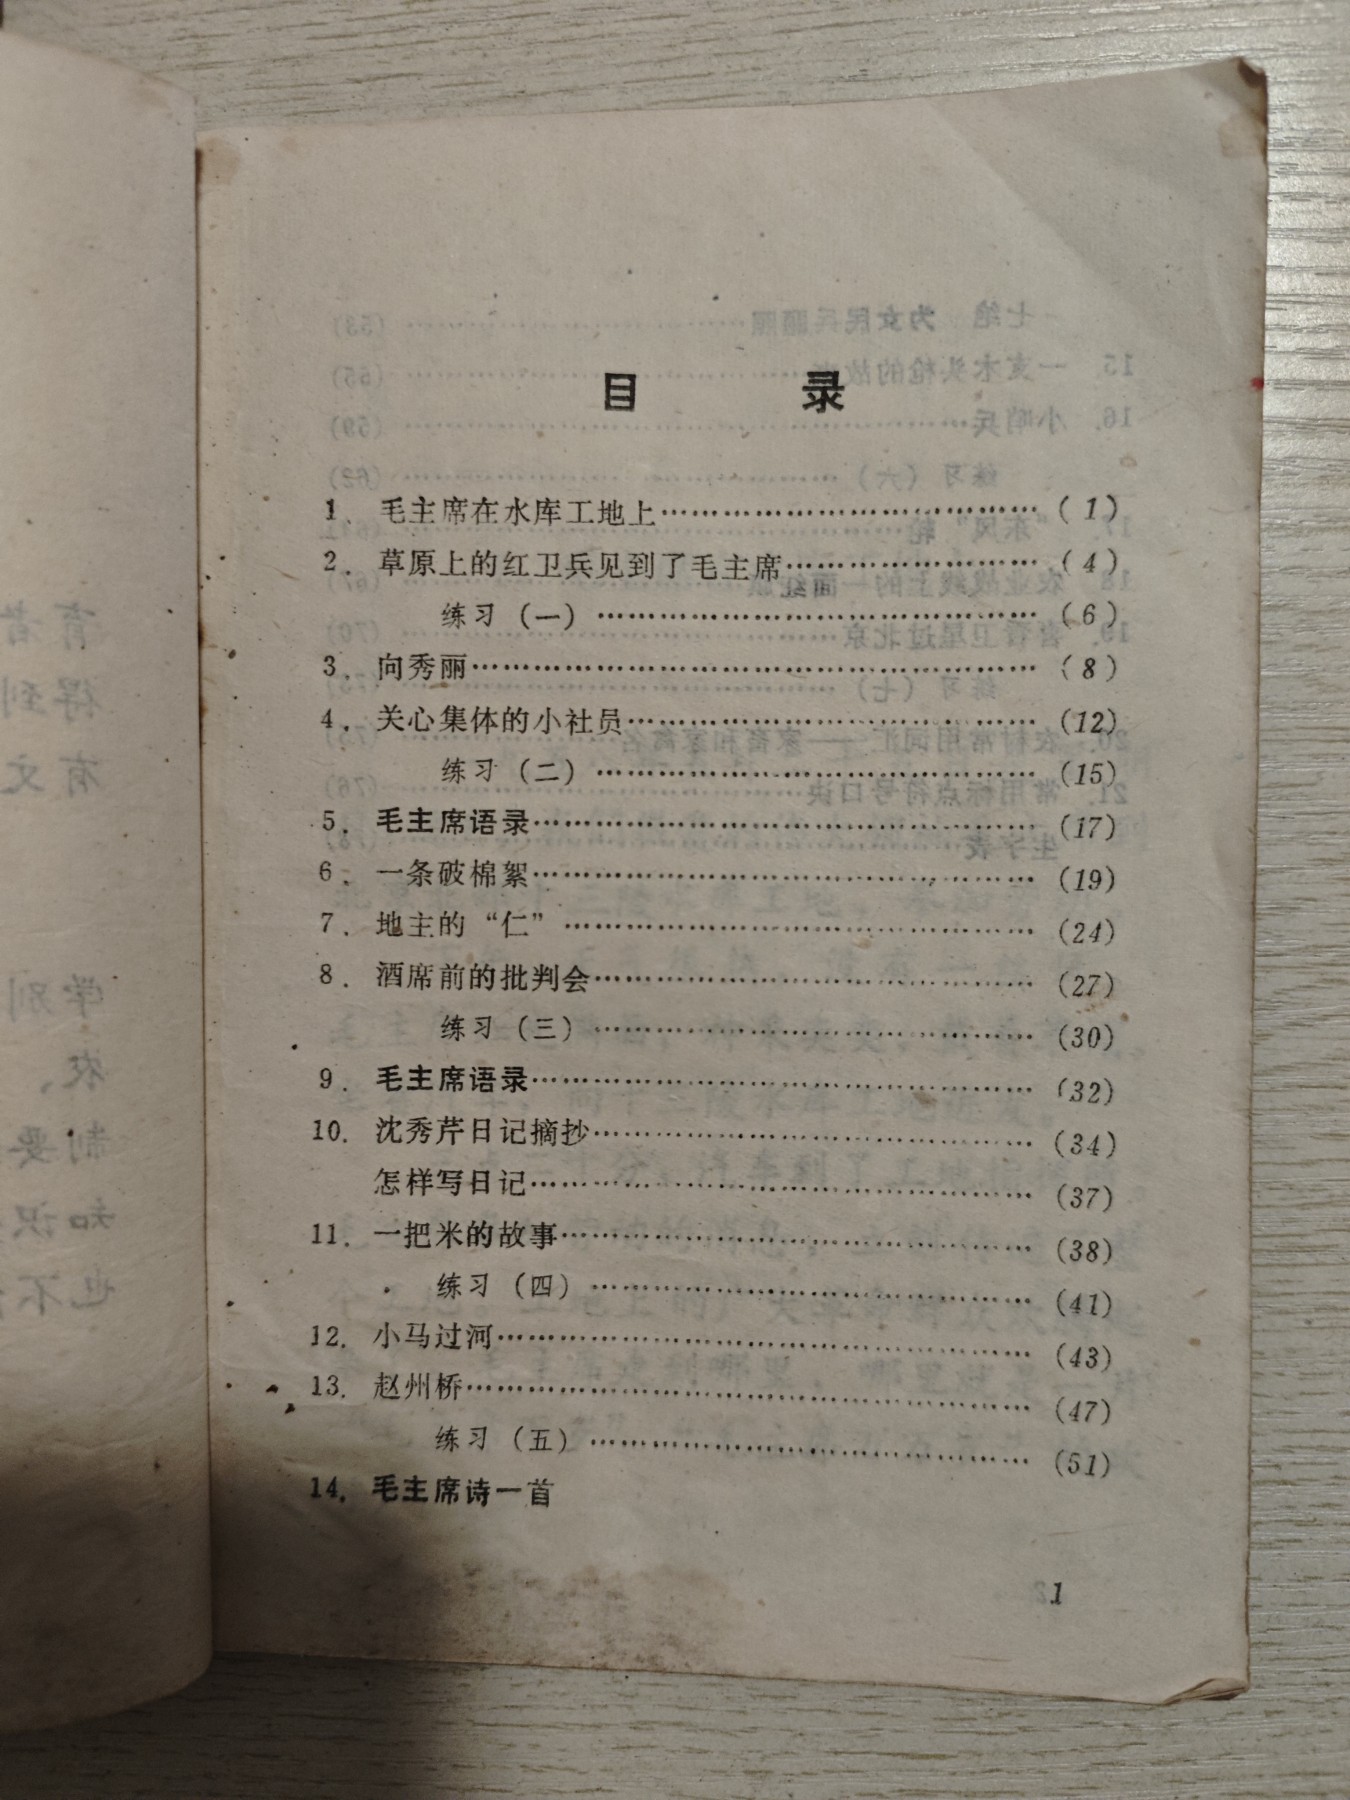 目 录
1. 毛主席在水库工地上……………………………(1)
2. 草原上的红卫兵见到了毛主席…………………(4)
练习(一)………………………………(6)
3. 向秀丽……………………………………………(8)
4. 关心集体的小社员………………………………(12)
练习(二)………………………………(15)
5. 毛主席语录………………………………………(17)
6. 一条破棉絮………………………………………(19)
7. 地主的“仁”……………………………………(24)
8. 酒席前的批判会…………………………………(27)
练习(三)………………………………(30)
9. 毛主席语录………………………………………(32)
10. 沈秀芹日记摘抄…………………………………(34)
怎样写日记………………………………………(37)
11. 一把米的故事……………………………………(38)
练习(四)………………………………(41)
12. 小马过河…………………………………………(43)
13. 赵州桥……………………………………………(47)
练习(五)………………………………(51)
14. 毛主席诗一首
1